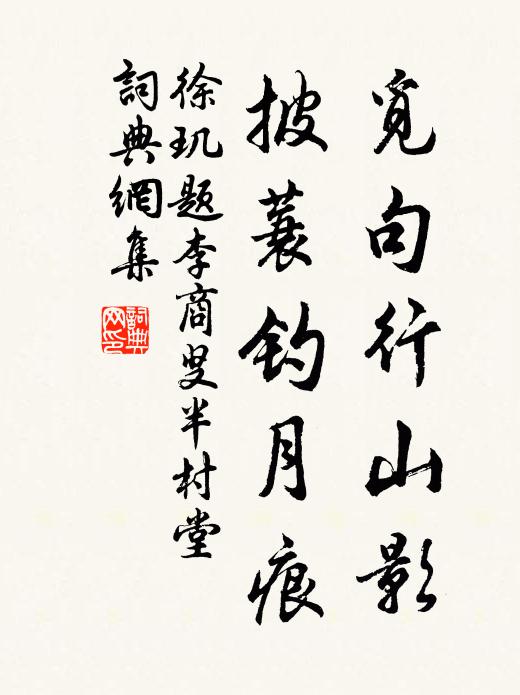 覓句行山影
披蓑釣月痕
徐玑题李商叟半村堂
詞典網集
詞典
网印